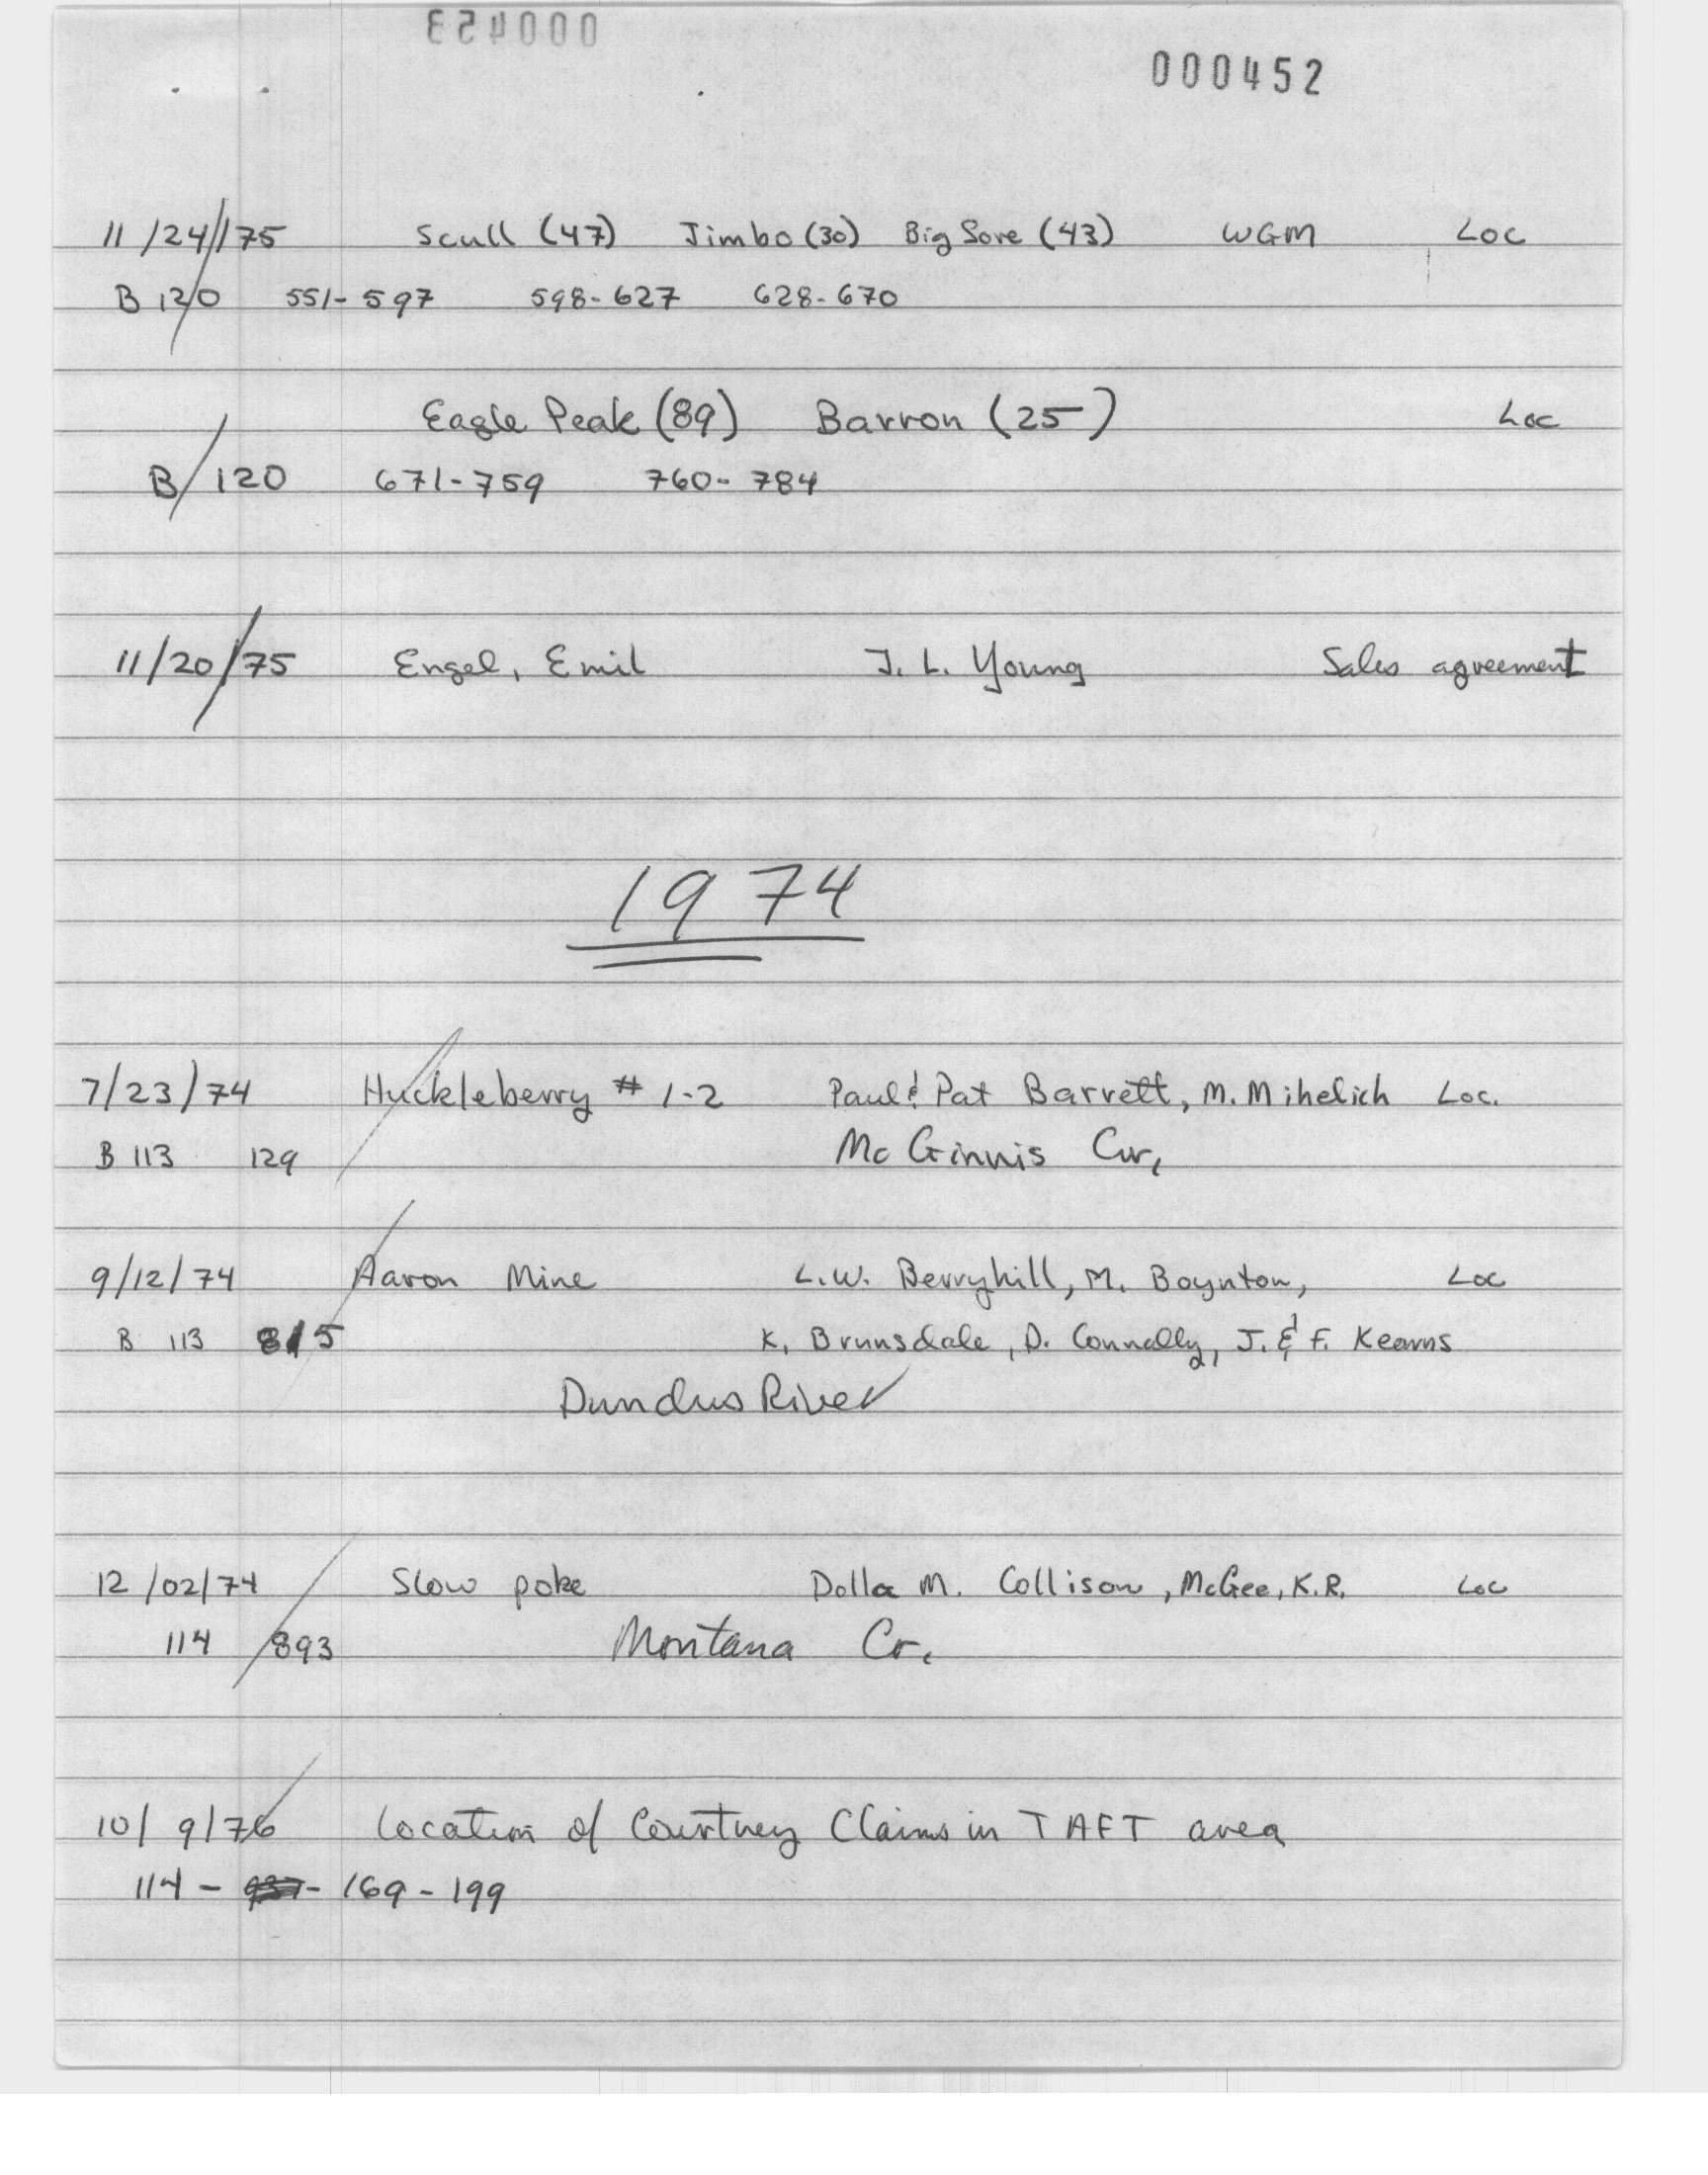 000453
000452
11/24/75 Scull (47) Jimbo (30) Big Sore (43) WGM Loc
B 120 551-597 598-627 628-670
Eagle Peak (89) Barron (25) Loc
B 120 671-759 760-784
11/20/75 Engel, Emil J. L. Young Sales agreement
1974
7/23/74 Huckleberry # 1-2 Paul & Pat Barrett, M. Mihelich Loc.
B 113 129 McGinnis
9/12/74 Aaron Mine L.W. Berryhill, M. Boynton, Loc
B 113 815 K. Brunsdale, D. Connolly, J. & F. Kearns
Dundus River
12/02/74 Slow poke Dolla M. Collison, McGee, K.R. Loc
114 893 Montana Cr.
10/9/76 Location of Courtney Claims in TAFT area
114 - 169 - 199